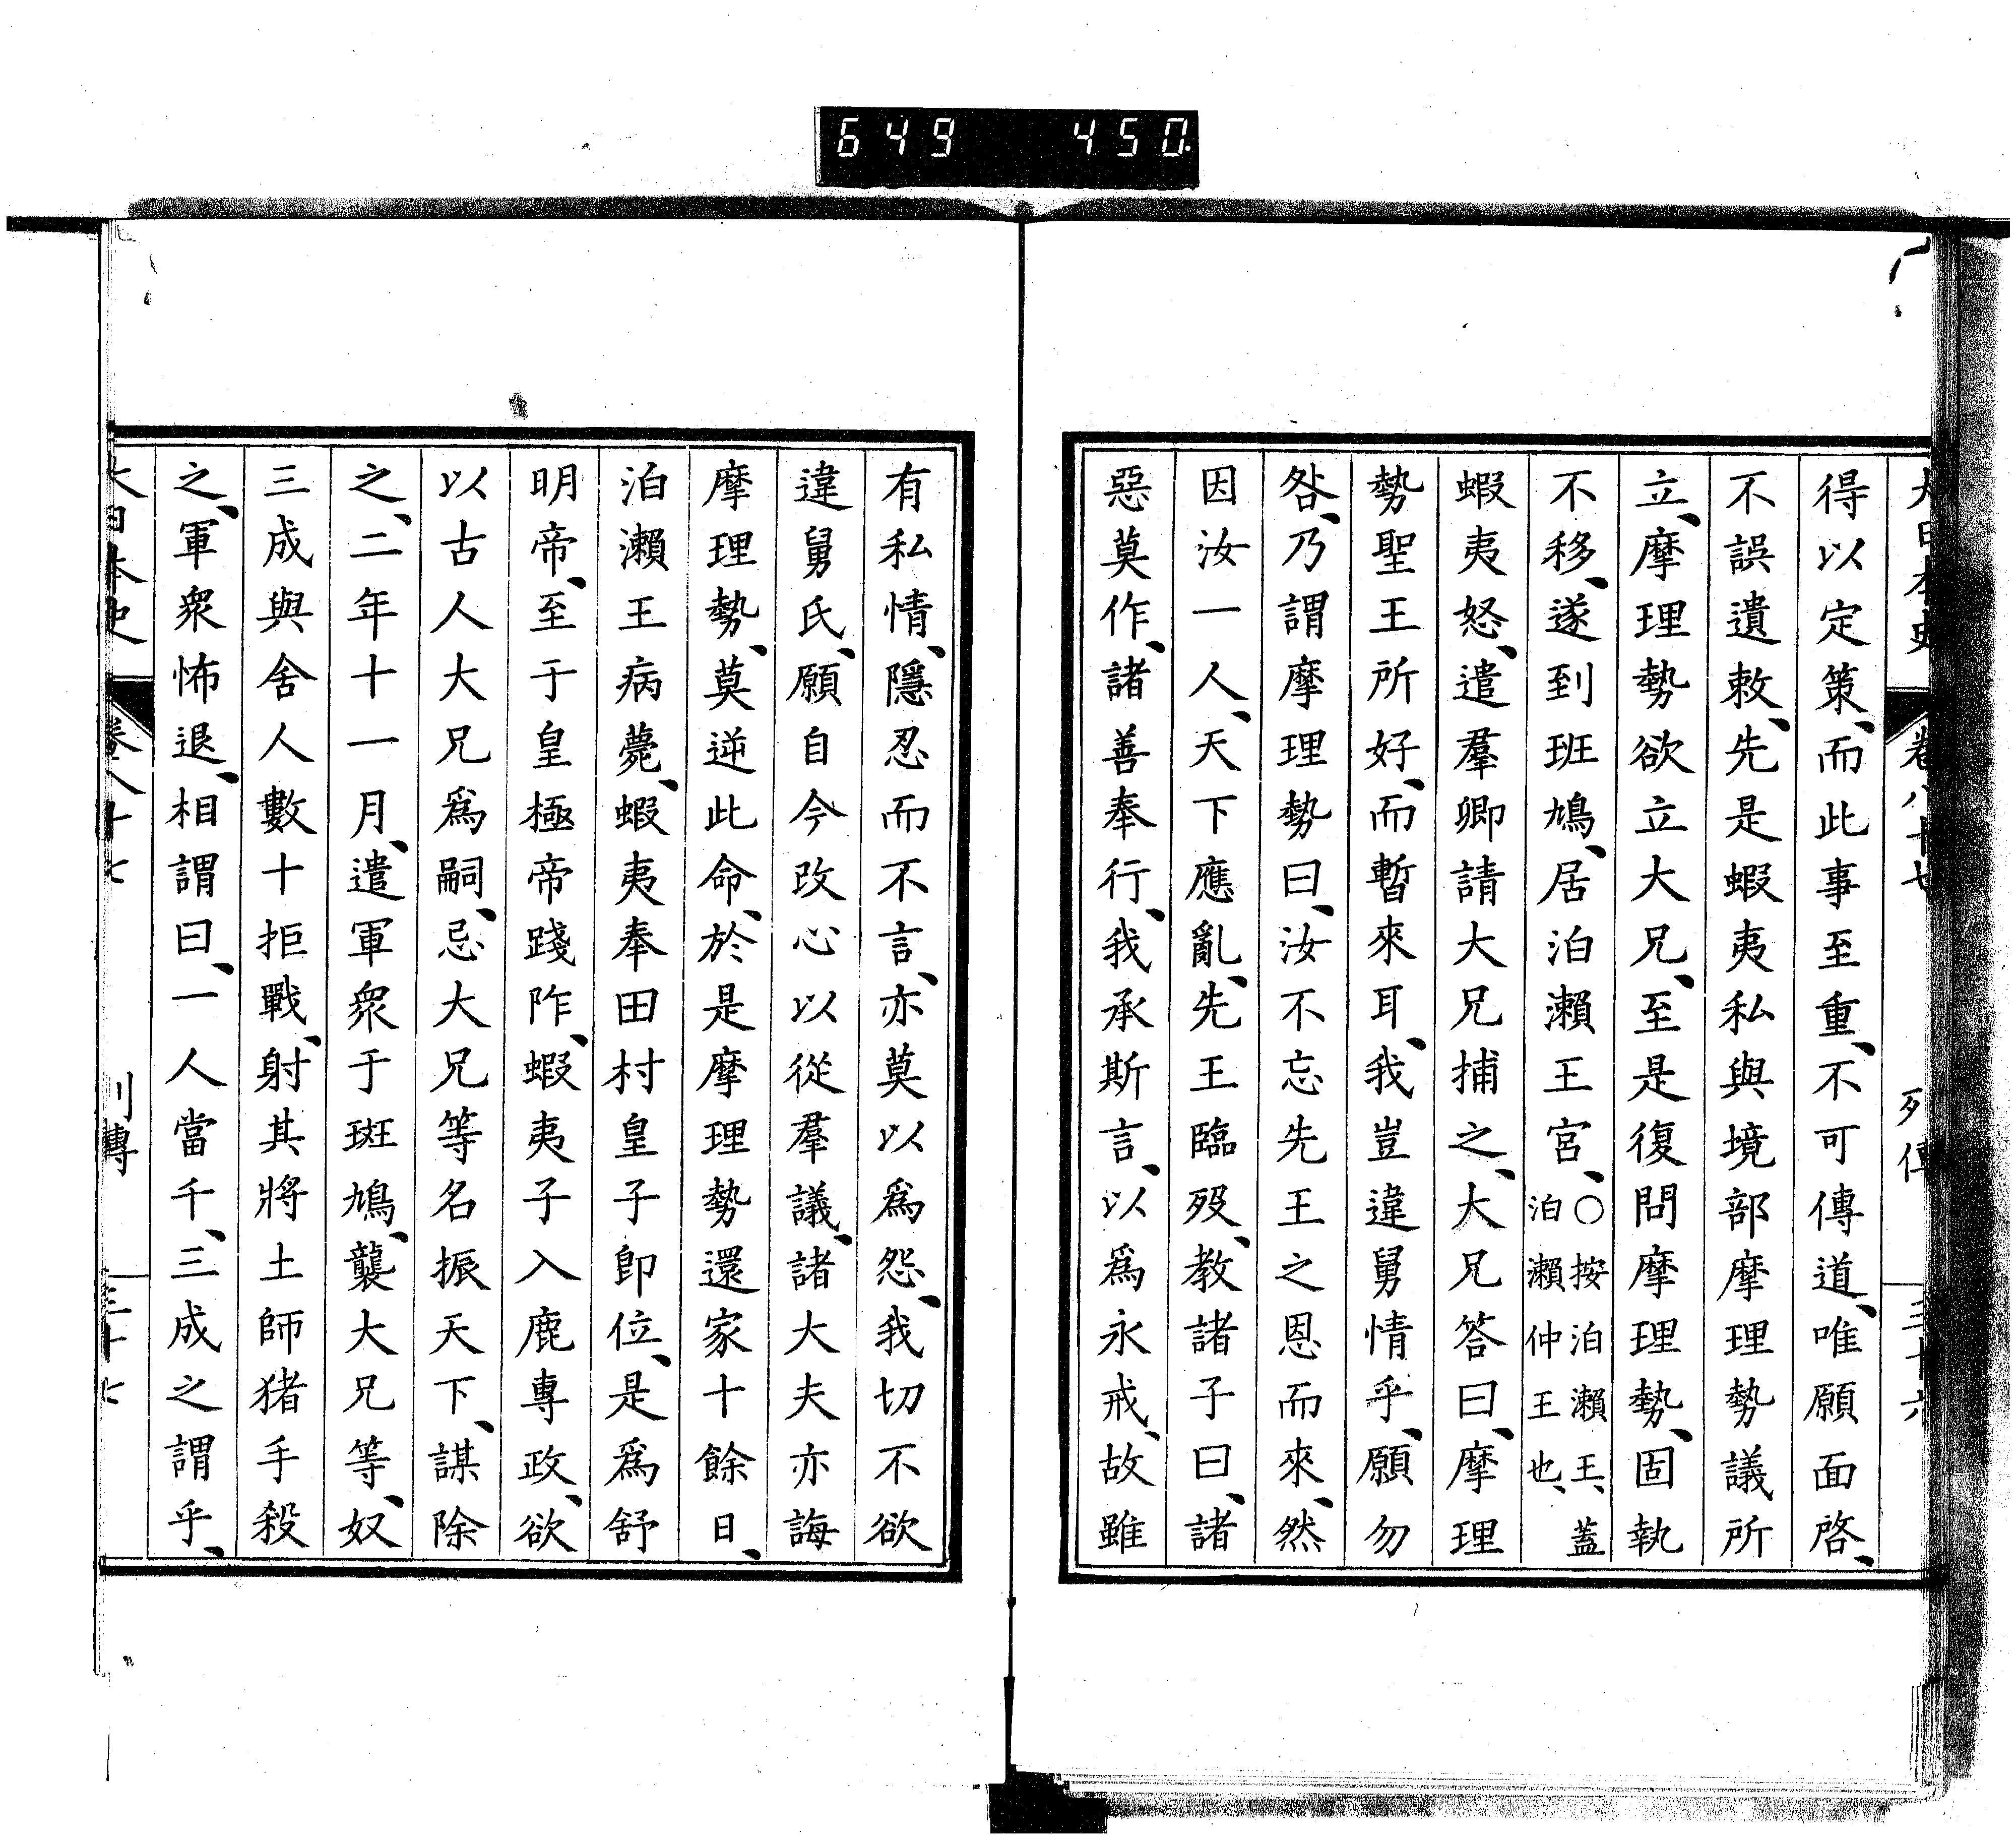 649 450
大日本史 卷八十七 列傳 三十六
得以定策、而此事至重、不可傳道、唯願面啓、
不誤遺敕、先是蝦夷私與境部摩理勢議所
立、摩理勢欲立大兄、至是復問摩理勢、固執
不移、遂到班鳩、居泊瀨王宮、○按泊瀨王、蓋泊瀨仲王也、
蝦夷怒、遣羣卿請大兄捕之、大兄答曰、摩理
勢聖王所好、而暫來耳、我豈違舅情乎、願勿
咎、乃謂摩理勢曰、汝不忘先王之恩而來、然
因汝一人、天下應亂、先王臨歿、教諸子曰、諸
惡莫作、諸善奉行、我承斯言、以爲永戒、故雖
有私情、隱忍而不言、亦莫以爲怨、我切不欲
違舅氏、願自今改心以從羣議、諸大夫亦誨
摩理勢、莫逆此命、於是摩理勢還家十餘日、
泊瀨王病薨、蝦夷奉田村皇子卽位、是爲舒
明帝、至于皇極帝踐阼、蝦夷子入鹿專政、欲
以古人大兄爲嗣、忌大兄等名振天下、謀除
之、二年十一月、遣軍衆于斑鳩、襲大兄等、奴
三成與舍人數十拒戰、射其將土師猪手殺
之、軍衆怖退、相謂曰、一人當千、三成之謂乎、
大日本史 卷八十七 列傳 三十七